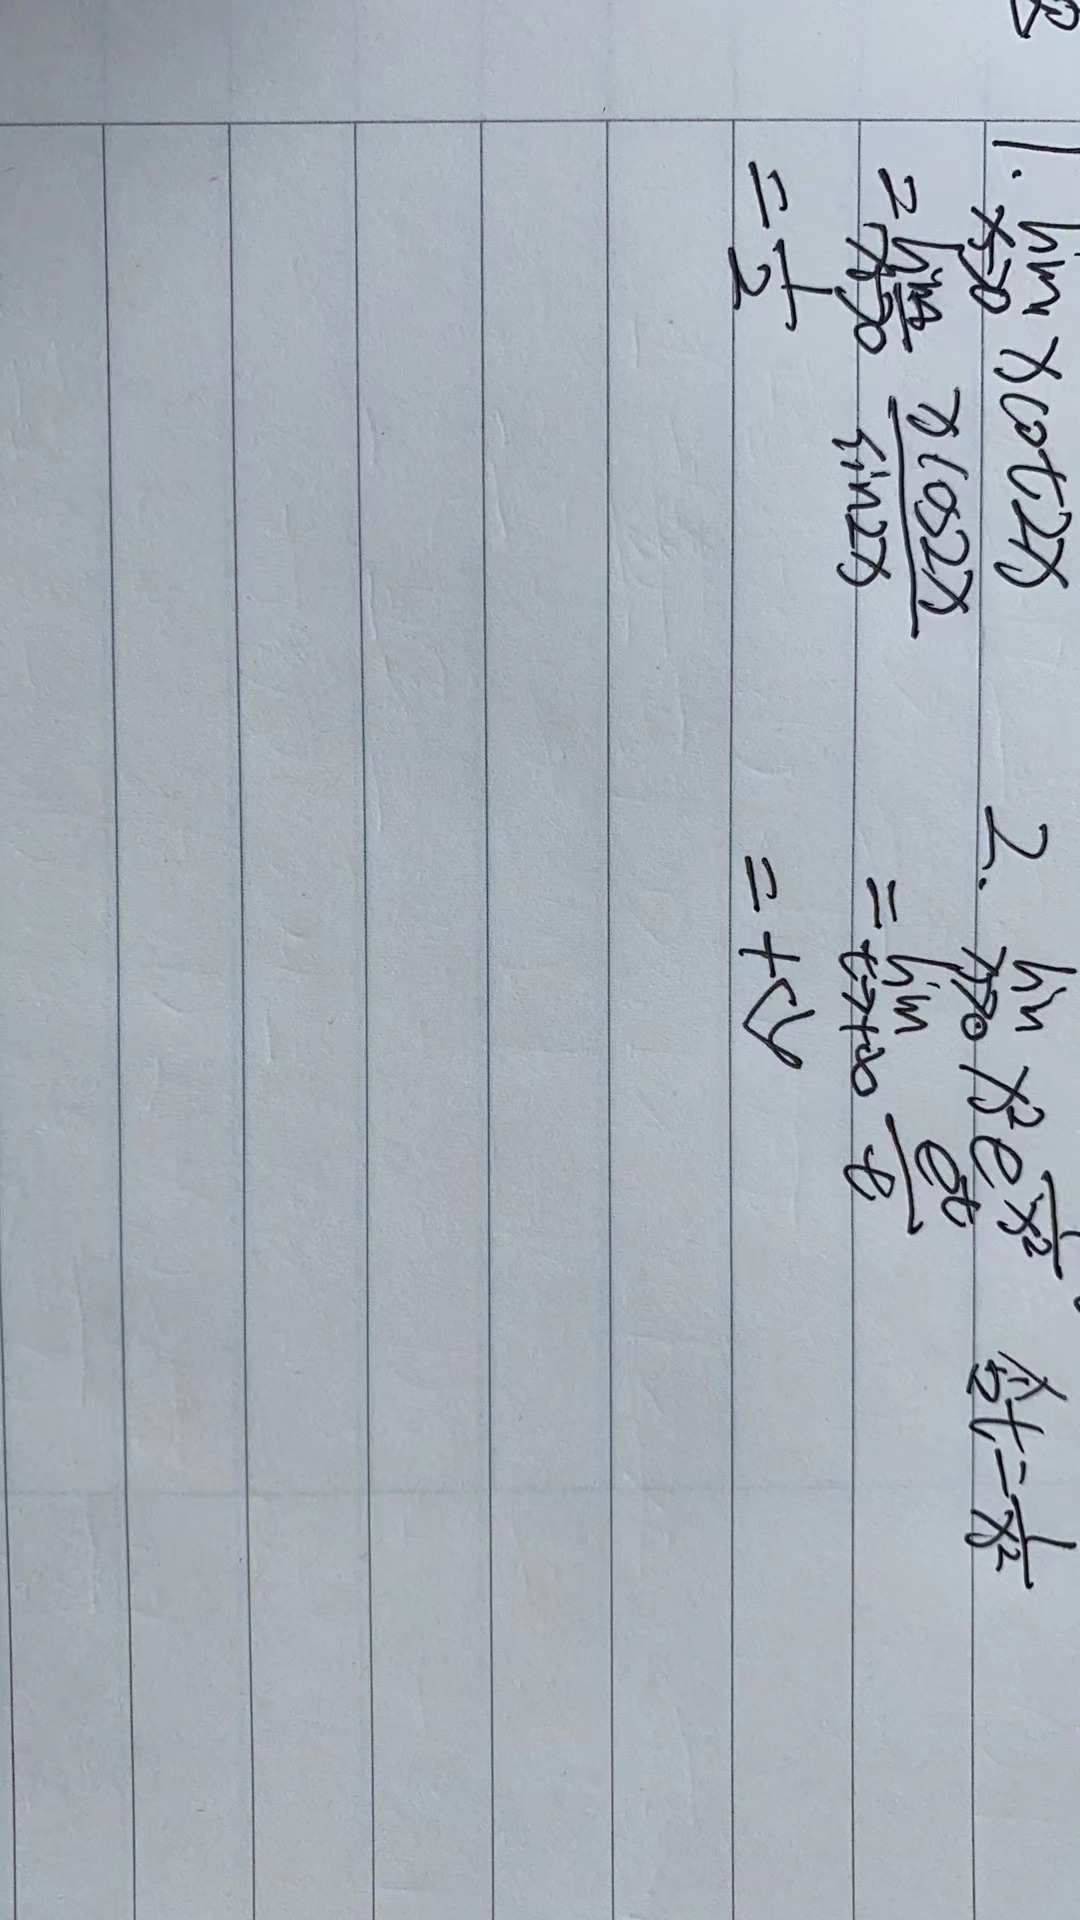 1. lim x→0 x cot2x
= lim x→0 x cos2x / sin2x
= 1/2
2. lim x→0 x² e^(1/x²) 令t=1/x²
= lim t→+∞ e^t / t
= +∞